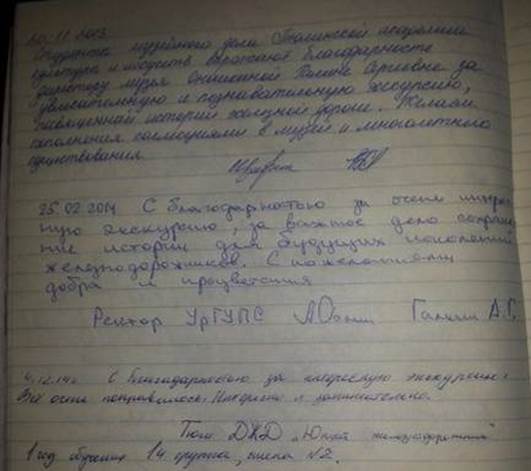 20.11.2013
Студенты музейного дела Тюменской академии
культуры и искусств выражают благодарность
директору музея Галине Сергеевне за
увлекательную и познавательную экскурсию,
посвященной истории железной дороги. Желаем
пополнения коллекциями в музее и многолетнего
существования.
25.02.2014 С благодарностью за очень интерес-
ную экскурсию, за важное дело сохране-
ние истории для будущих поколений
железнодорожников. С пожеланиями
добра и процветания
Ректор УрГУПС Галкин А.Г.
4.12.14г. С благодарностью за интересную экскурсию.
Всё очень понравилось. Интересно и занимательно.
ДЖД "Юный железнодорожник"
1 год обучения 14 группа, школа №2.